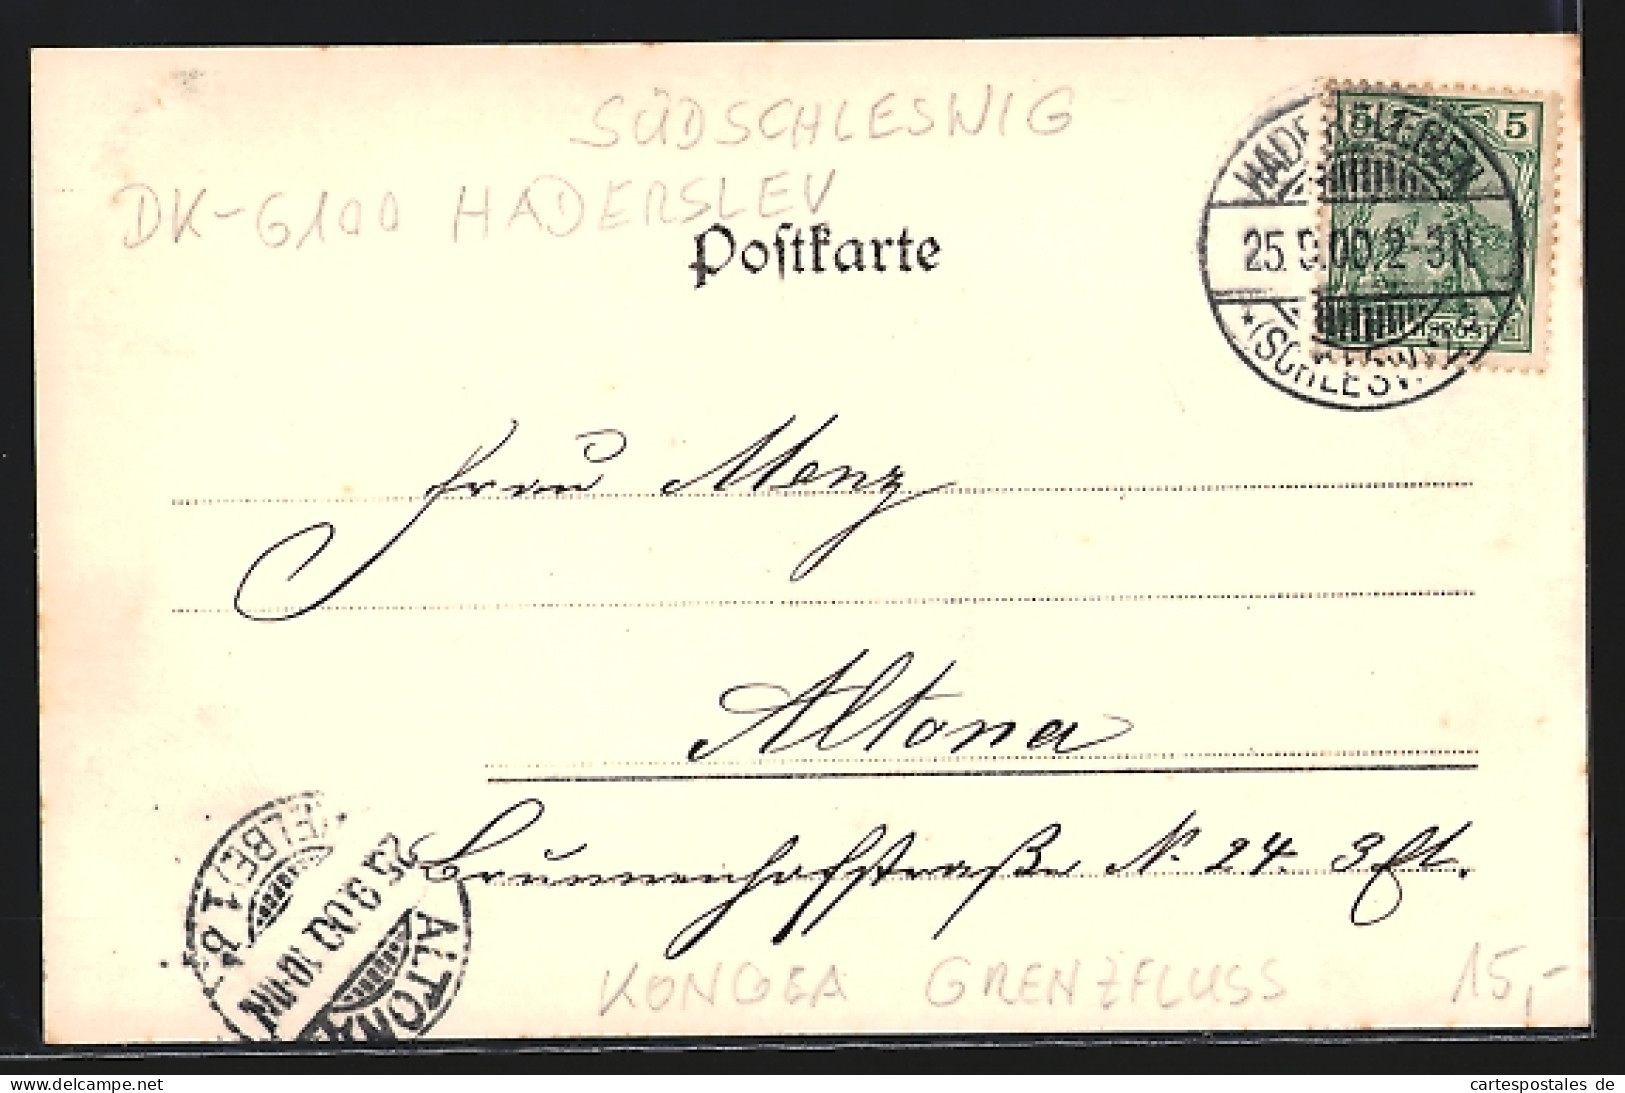 SÜDSCHLESWIG
DK-6100 HADERSLEV
Postkarte
5 5
HADERSLEBEN
25.9.00.2-3N
*(SCHLESW.)
REICHSPOST
Frau Menz
Altona
Brunnenhofstraße N. 24. 3 Et.
ALTONA
25.9.00.10-11N
*(ELBE) 1 B
KONGEA GRENZFLUSS
15,-
delcampe.net
cartespostales_de